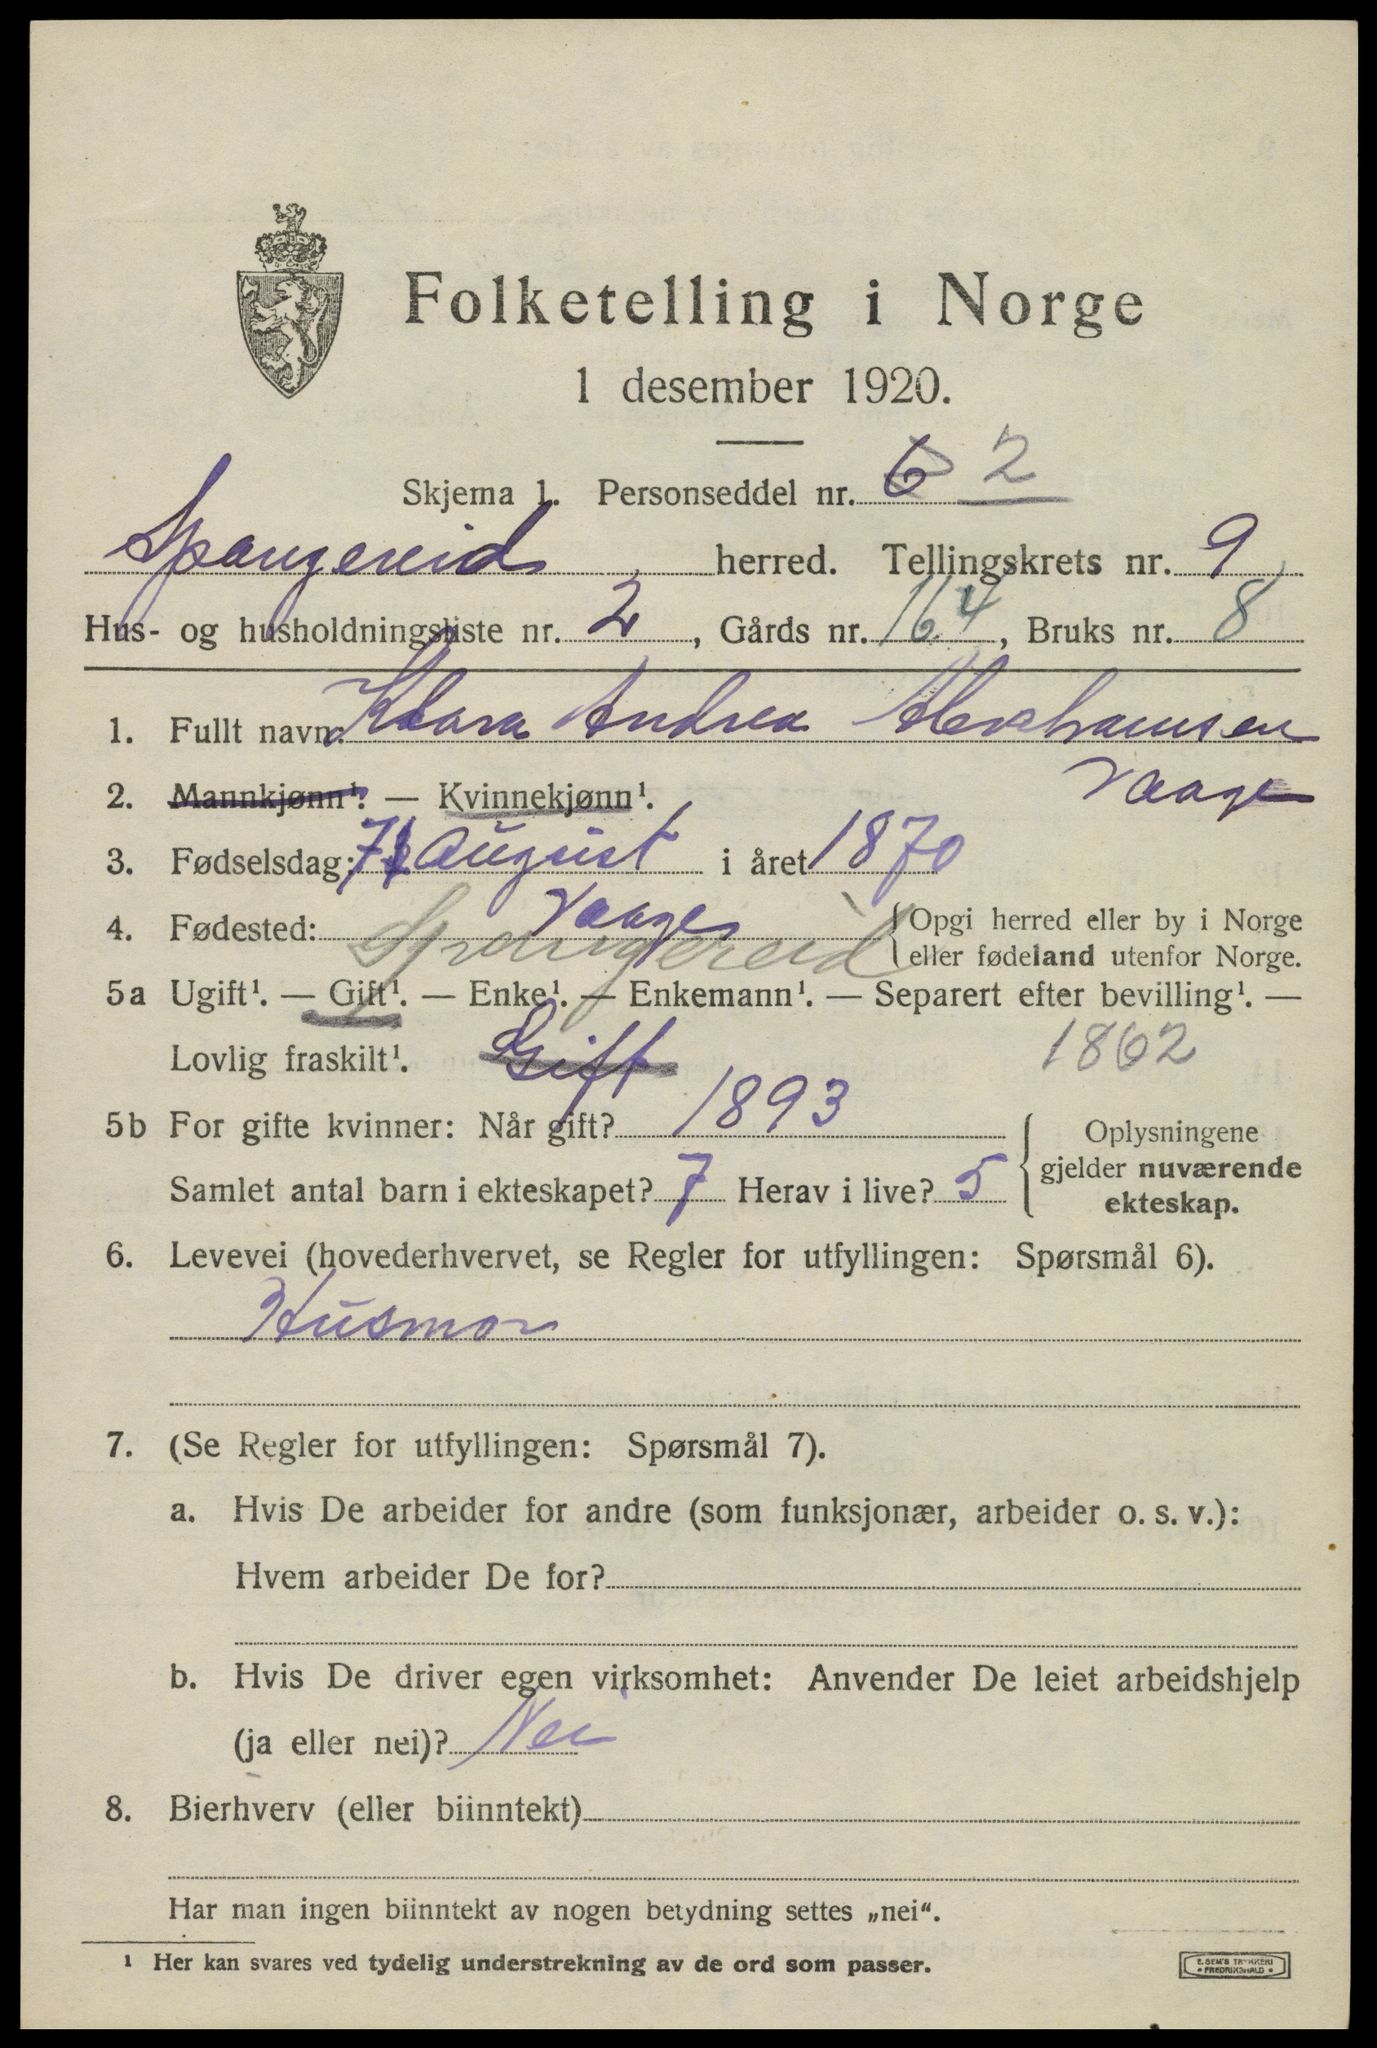 Folketelling i Norge
1 desember 1920.
Skjema 1. Personseddel nr. 6 2
Spangereid herred. Tellingskrets nr. 9
Hus- og husholdningsliste nr. 2, Gårds nr. 164, Bruks nr. 8
1. Fullt navn: Klara Andrea Abrahamsen
Vaage
2. Mannkjønn¹. — Kvinnekjønn¹.
3. Fødselsdag: 7 August i året 1870
4. Fødested: Vaage {Opgi herred eller by i Norge
Spangereid eller fødeland utenfor Norge.
5a Ugift¹. — Gift¹. — Enke¹. — Enkemann¹. — Separert efter bevilling¹. —
Lovlig fraskilt¹. Gift 1862
5b For gifte kvinner: Når gift? 1893 Oplysningene
Samlet antal barn i ekteskapet? 7 Herav i live? 5 gjelder nuværende
ekteskap.
6. Levevei (hovederhvervet, se Regler for utfyllingen: Spørsmål 6).
Husmor
7. (Se Regler for utfyllingen: Spørsmål 7).
a. Hvis De arbeider for andre (som funksjonær, arbeider o. s. v.):
Hvem arbeider De for?
b. Hvis De driver egen virksomhet: Anvender De leiet arbeidshjelp
(ja eller nei)? Nei
8. Bierhverv (eller biinntekt)
Har man ingen biinntekt av nogen betydning settes „nei".
¹ Her kan svares ved tydelig understrekning av de ord som passer.
E. SEM'S TRYKKERI
• FREDRIKSHALD •